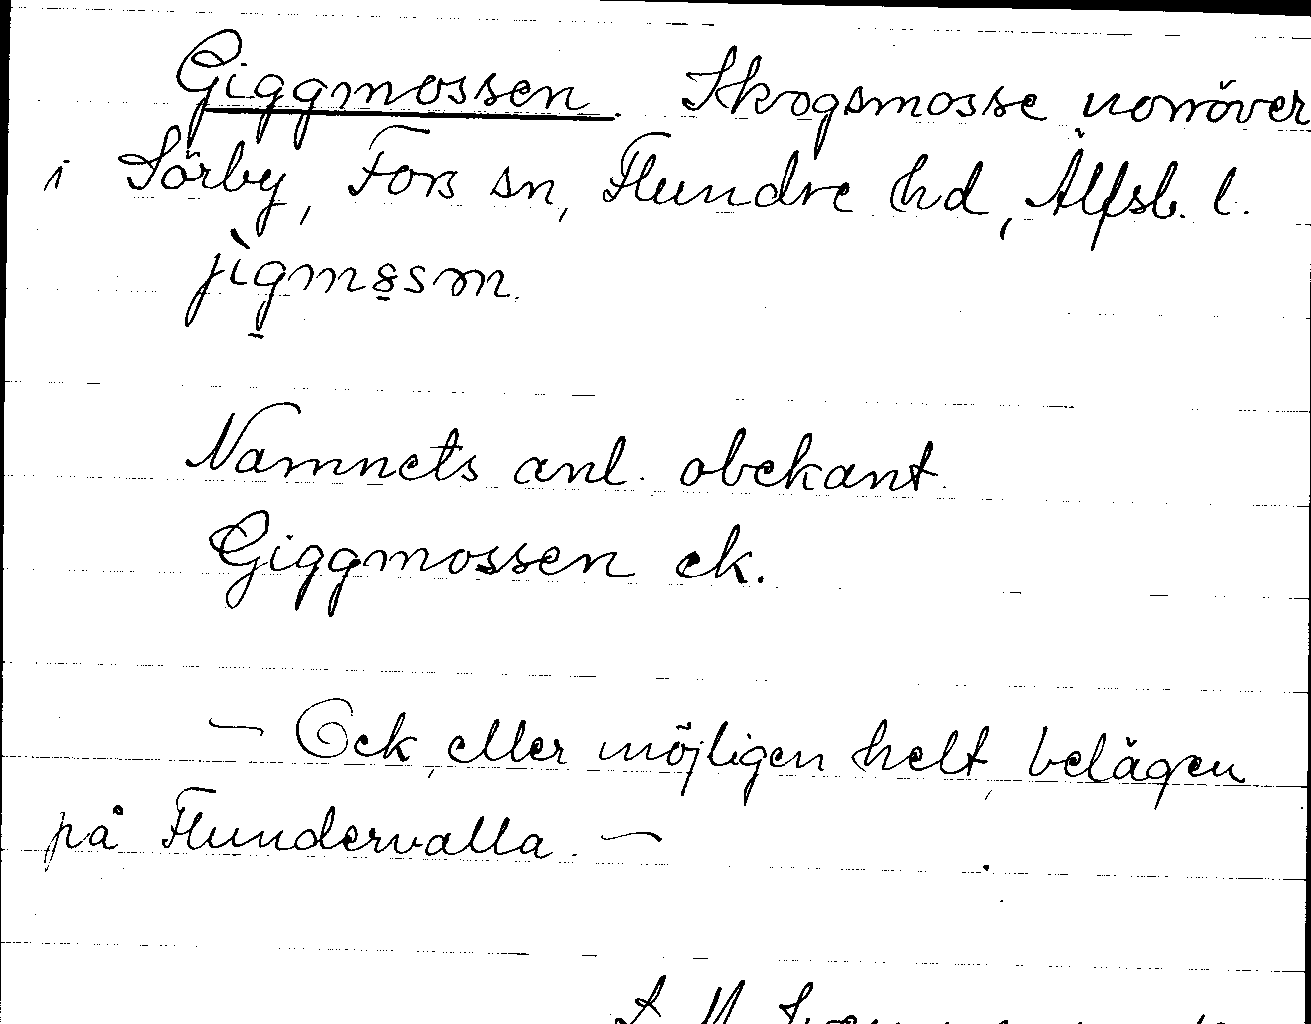 Giggmossen. Skogsmosse norröver
i Sörby, Fors sn, Flundre hd, Älfsb. l.
Namnets anl. obekant.
Giggmossen ek.
— Ock, eller möjligen helt, belägen
på Flundervalla. —